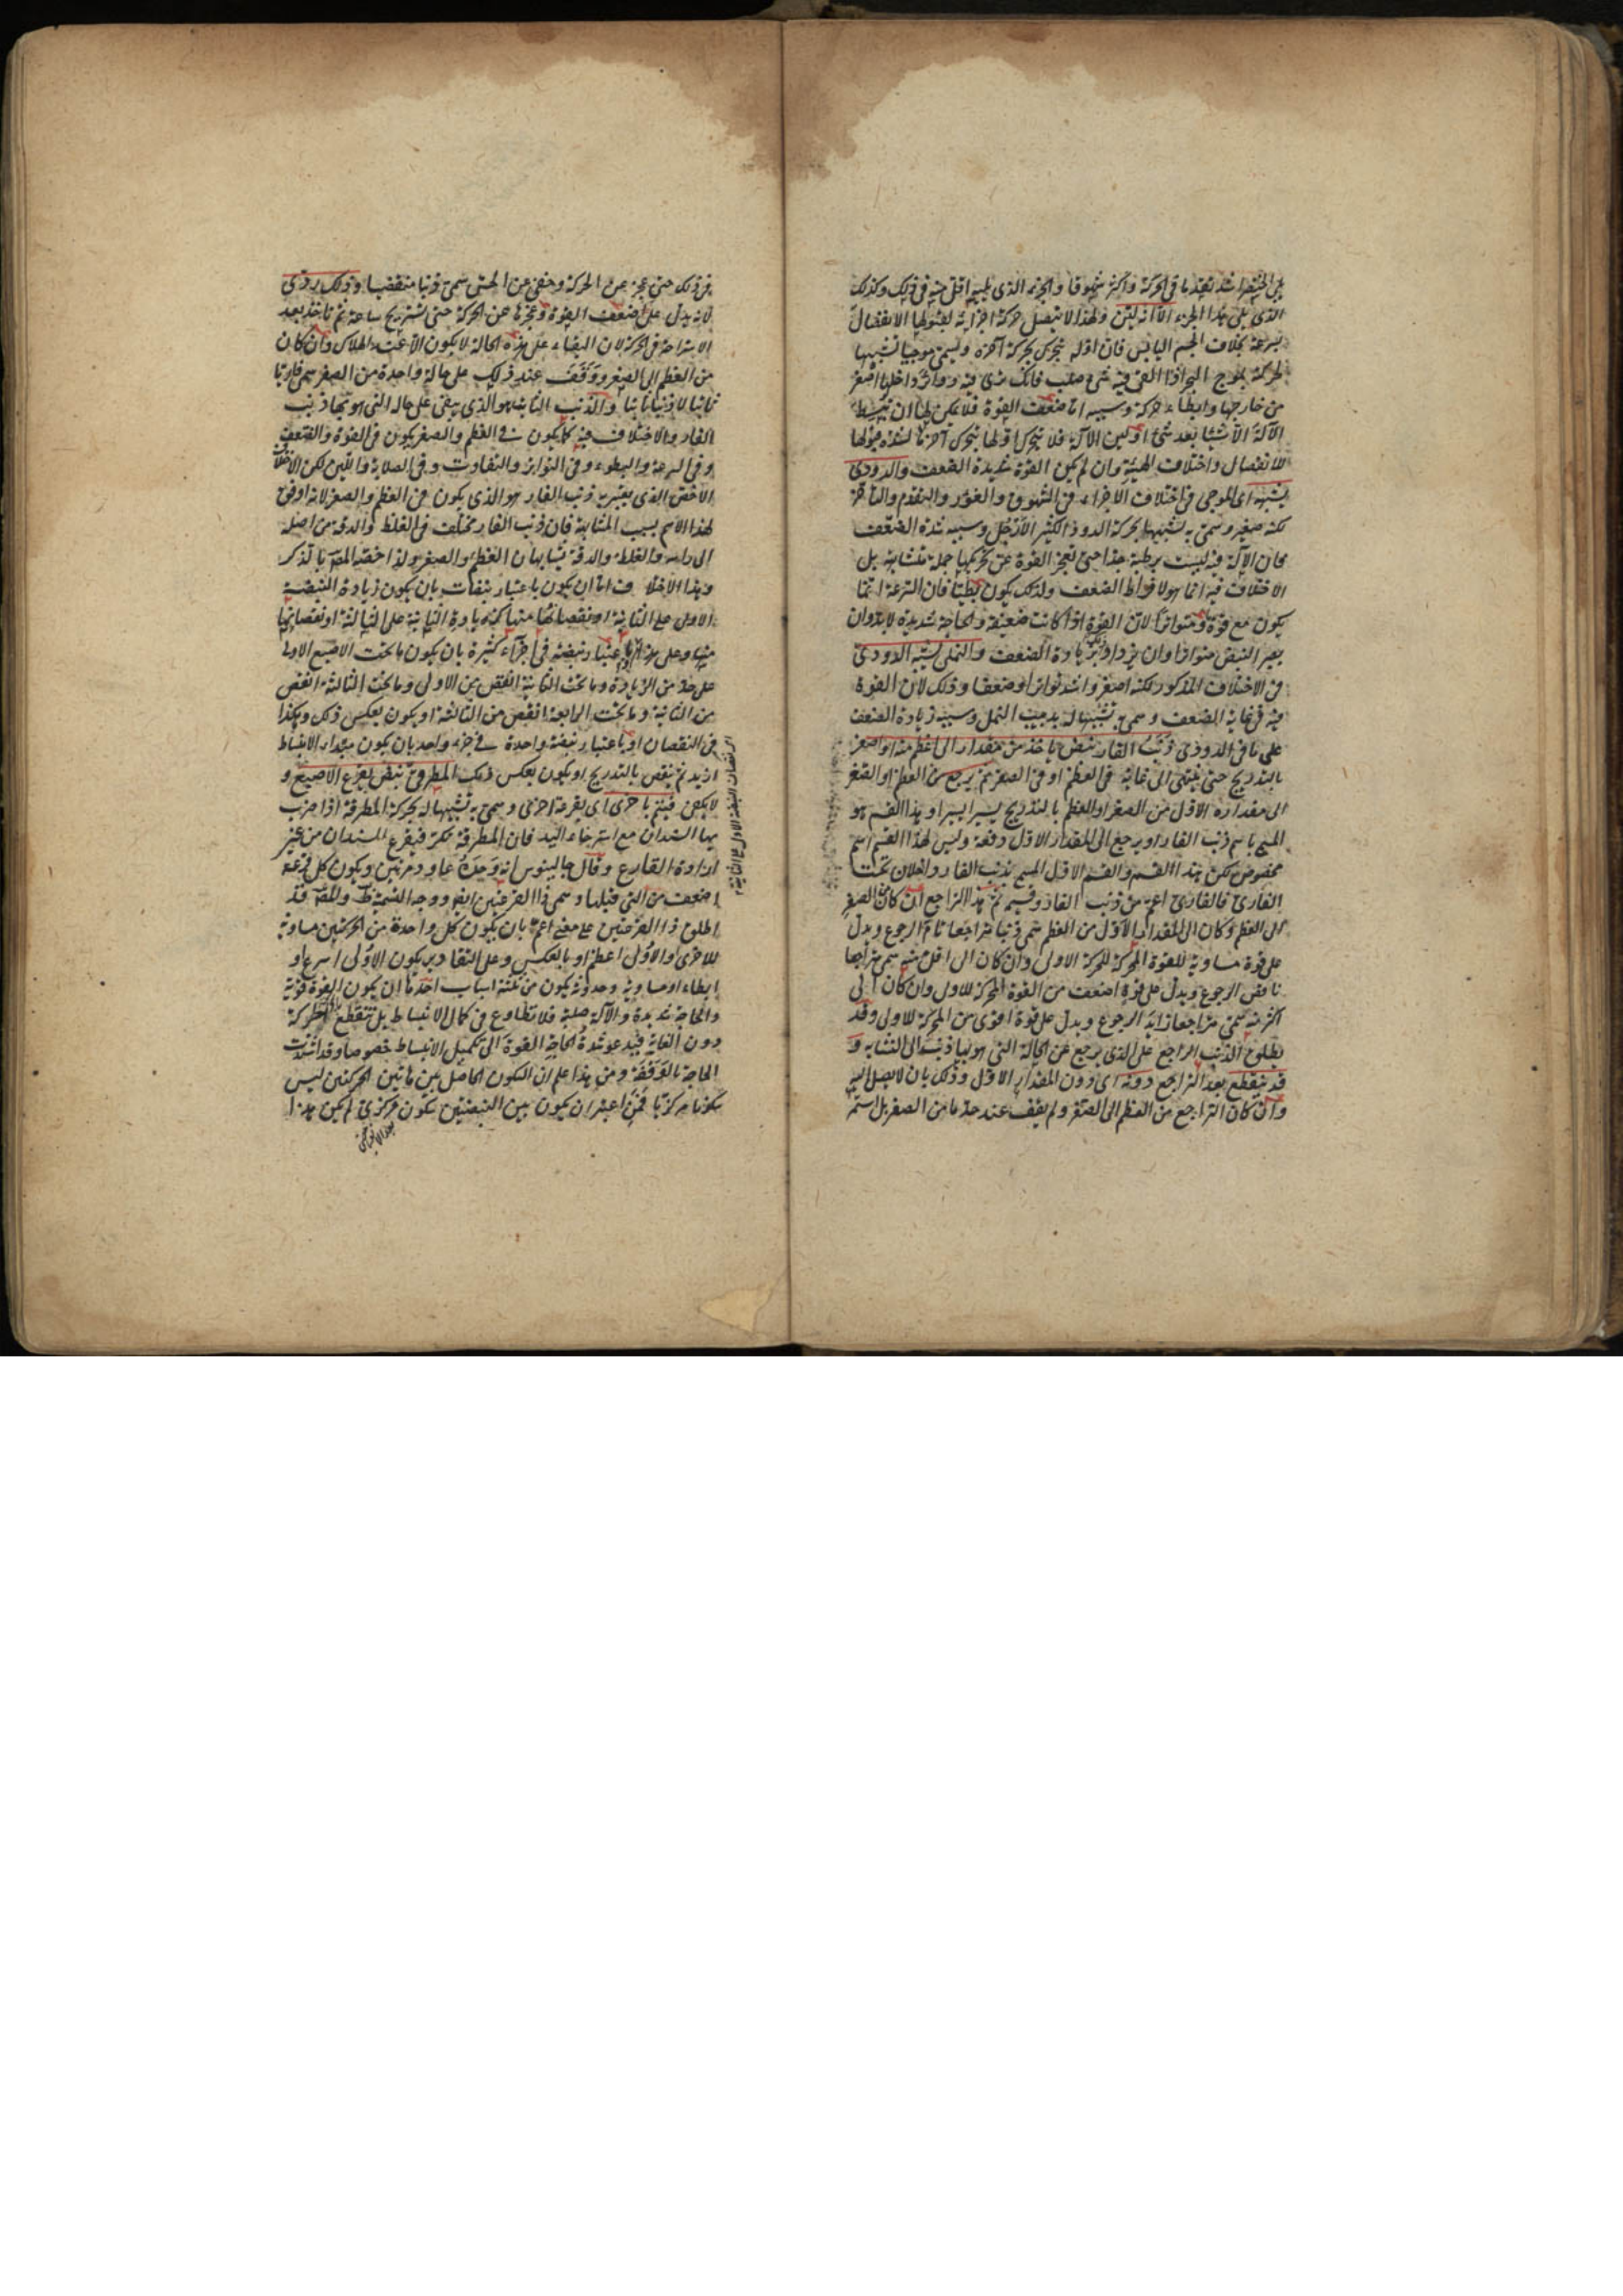 يلي الخنصر اشد تقدما في الحركة واكثر شهوقا والجزء الذي يليه اقل منه في ذلك وكذلك
الذي يلي هذا الجزء الا انه لين ولهذا لا تتصل حركة اجزائه لقبولها الانفصال
بسرعة بخلاف الجسم اليابس فان اوله يتحرك بحركة آخره ويسمى موجيا تشبيها
لحركته بموج البحر اذا القي فيه شيء صلب فانك ترى فيه دوائر داخلها اصغر
من خارجها وابطاء حركة وسببه اما ضعف القوة فلا يمكن لها ان تبسط
الآلة الا شيئا بعد شيء او لين الآلة فلا يتحرك اولها بتحرك آخرها لشدة قبولها
للانفصال واختلاف الهيئة وان لم يكن القوة شديدة الضعف والدودي
يشبهه اي الموجي في اختلاف الاجزاء في الشهوق والغور والتقدم والتأخر
لكنه صغير وسمي به تشبيها بحركة الدود الكثير الارجل وسببه شدة الضعف
وكان الآلة فيه ليست برطبة جدا حتى تعجز القوة عن تحريكها جملة متشابهة بل
الاختلاف فيه انما هو لافراط الضعف ولذلك يكون بطيئا فان السرعة انما
يكون مع قوة ومتواترا لان القوة اذا كانت ضعيفة والحاجة شديدة لابد وان
يصير النبض متواترا وان يزداد بزيادة الضعف والنملي يشبه الدودي
في الاختلاف المذكور لكنه اصغر واشد تواترا وضعفا وذلك لان القوة
فيه في غاية الضعف وسمي به تشبيها له بدبيب النمل وسببه زيادة الضعف
على ما في الدودي ذنب الفار نبض ياخذ من مقدار الى اعظم منه او اصغر
بالتدريج حتى ينتهي الى غاية في العظم او في الصغر ثم يرجع من العظم او الصغر
الى مقداره الاول من الصغر او العظم بالتدريج يسيرا يسيرا وهذا القسم هو
المسمى باسم ذنب الفار او يرجع الى المقدار الاول دفعة وليس لهذا القسم اسم
مخصوص لكن هذا القسم والقسم الاول المسمى بذنب الفار داخلان تحت
الفاري فالفاري اعم من ذنب الفار وقسيمه ثم هذا الراجع ان كان من الصغر
الى العظم وكان الى المقدار الاول من العظم سمي ذنبا متراجعا تام الرجوع ويدل
على قوة مساوية للقوة المحركة للحركة الاولى وان كان الى اقل منه سمي متراجعا
ناقص الرجوع ويدل على قوة اضعف من القوة المحركة للاول وان كان الى
اكثر منه سمي متراجعا زايد الرجوع ويدل على قوة اقوى من المحركة للاولى وقد
يطلق الذنب الراجع على الذي يرجع عن الحالة التي هو بها ذنب الى التشابه و
قد ينقطع بعد التراجع دونه اي دون المقدار الاول وذلك بان لا يصل اليه
وان كان التراجع من العظم الى الصغر ولم يقف عند حد ما من الصغر بل استمر
في ذلك حتى عجز عن الحركة وخفي عن الحس سمي ذنبا منقضيا وذلك ردي
لانه يدل على ضعف القوة وعجزها عن الحركة حتى تستريح ساعة ثم تاخذ بعد
الاستراحة في الحركة لان البقاء على هذه الحالة لا يكون الا عند الهلاك وان كان
من العظم الى الصغر ووقف عند ذلك على حالة واحدة من الصغر سمي فاريا
ثابتا لا ذنبا ثابتا والذنب الثابت هو الذي يبقى على حاله التي هو بها ذنب
الفار والاختلاف فيه كما يكون في العظم والصغر يكون في القوة والضعف
وفي السرعة والبطوء وفي التواتر والتفاوت وفي الصلابة واللين لكن الاختلاف
الاخص الذي يعتبر به ذنب الفار هو الذي يكون في العظم والصغر لانه اوفق
لهذا الاسم بسبب المشابهة فان ذنب الفار مختلف في الغلظ والدقة من اصله
الى راسه والغلظ والدقة يشابهان العظم والصغر ولذا خصه المص بالذكر
وهذا الاختلاف اما ان يكون باعتبار نبضات بان يكون زيادة النبضة
الاولى على الثانية او نقصانها منها كزيادة الثانية على الثالثة او نقصانها
منها وعلى هذا او باعتبار نبضة في اجزاء كثيرة بان يكون ما تحت الاصبع الاولى
على حد من الزيادة وما تحت الثانية انقص من الاولى وما تحت الثالثة انقص
من الثانية وما تحت الرابعة انقص من الثالثة او يكون بعكس ذلك وهكذا
في النقصان او باعتبار نبضة واحدة في جزء واحد بان يكون مبدا الانبساط
ازيد ثم ينقص بالتدريج او يكون بعكس ذلك المطرقي نبض يقرع الاصبع و
لا يكفي فيتم باخرى اي بقرعة اخرى وسمي به تشبيها له بحركة المطرقة اذا ضرب
بها السندان مع استرخاء اليد فان المطرقة تكر فيقرع السندان من غير
ارادة القارع وقال جالينوس انه وجده عاود مرتين ويكون كل قرعة
اضعف من التي قبلها وسمي ذا القرعتين ايضا ووجه التسمية ظ والمص قد
اطلق ذا القرعتين على معنى اعم بان يكون كل واحدة من الحركتين مساوية
للاخرى او الاولى اعظم او بالعكس وعلى التقادير يكون الاولى اسرع او
ابطاء او مساوية وحدوثه يكون من ثلثة اسباب احدها ان يكون القوة قوية
والحاجة شديدة والآلة صلبة فلا تطاوع في كمال الانبساط بل تنقطع الحركة
دون الغاية فيدعو شدة الحاجة القوة الى تكميل الانبساط خصوصا وقد اشتدت
الحاجة بالوقفة ومن هذا علم ان السكون الحاصل بين هاتين الحركتين ليس
سكونا مركزيا فمن اعتبر ان يكون بين النبضتين سكون مركزي لم يكن هذا